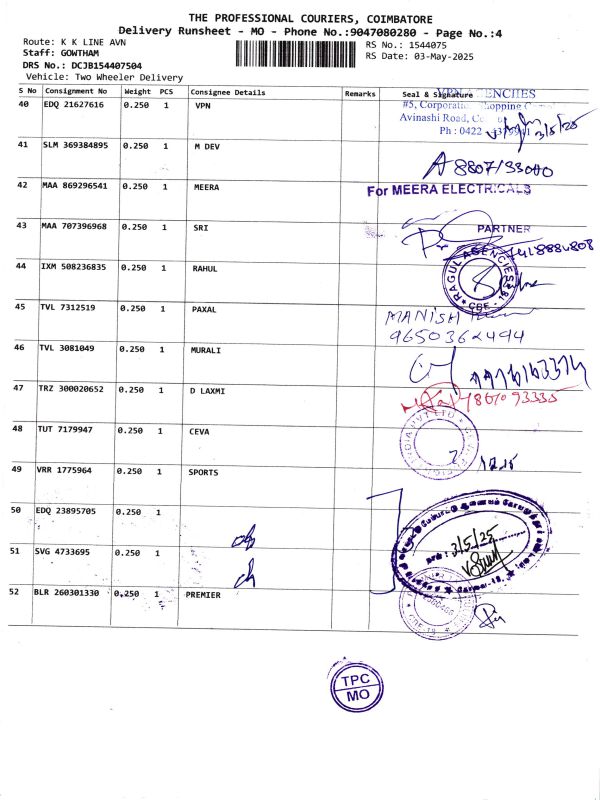 THE PROFESSIONAL COURIERS, COIMBATORE
Delivery Runsheet - MO - Phone No.:9047080280 - Page No.:4
Route: K K LINE AVN
RS No.: 1544075
Staff: GOWTHAM
RS Date: 03-May-2025
DRS No.: DCJB154407504
Vehicle: Two Wheeler Delivery
S No Consignment No Weight PCS Consignee Details Remarks Seal & Signature
40 EDQ 21627616 0.250 1 VPN
VPN AGENCIES
#5, Corporation Shopping
Avinashi Road,
Ph : 0422
3/5/25
41 SLM 369384895 0.250 1 M DEV
8807133000
42 MAA 869296541 0.250 1 MEERA
For MEERA ELECTRICALS
43 MAA 707396968 0.250 1 SRI
PARTNER
44 IXM 508236835 0.250 1 RAHUL
RAGUL AGENCIES
CBE - 18
45 TVL 7312519 0.250 1 PAXAL
MANISH
9650362494
46 TVL 3081049 0.250 1 MURALI
47 TRZ 300020652 0.250 1 D LAXMI
48 TUT 7179947 0.250 1 CEVA
49 VRR 1775964 0.250 1 SPORTS
50 EDQ 23895705 0.250 1
3/5/25
51 SVG 4733695 0.250 1
52 BLR 260301330 0.250 1 PREMIER
TPC
MO